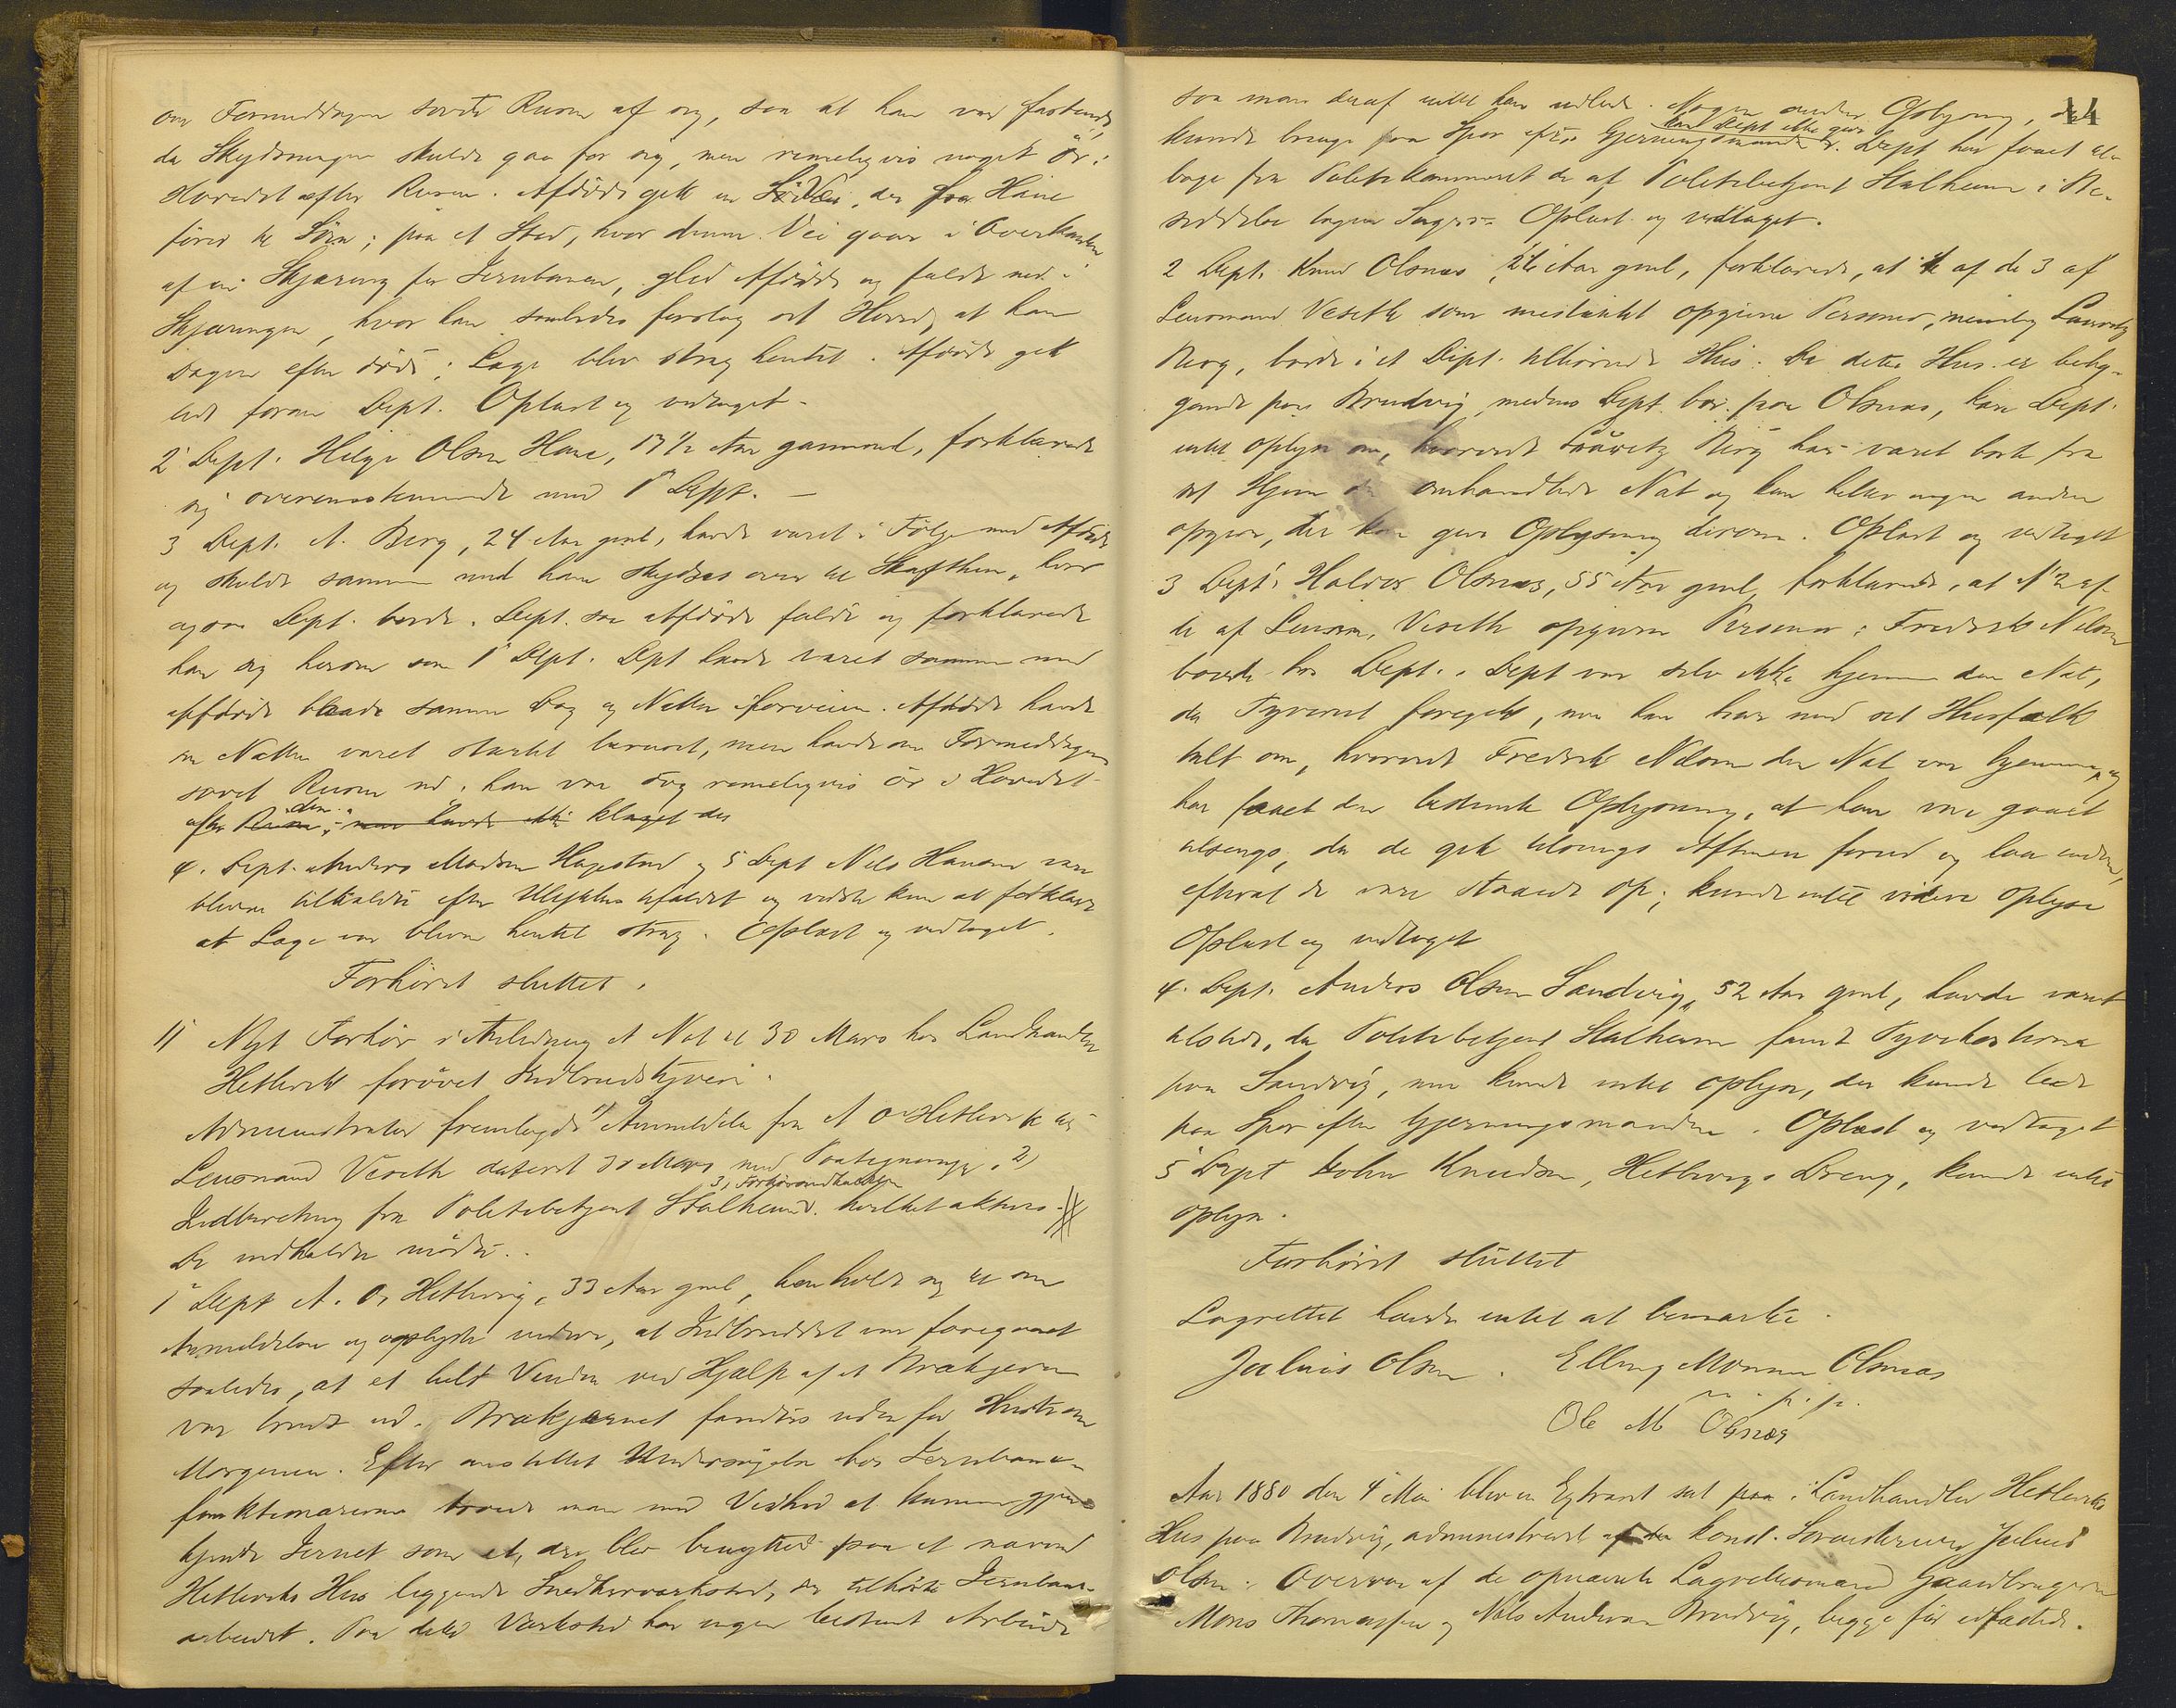 om Formiddagen sovet Rusen af sig, saa at han var fastende,
da Skydsningen skulde gaa for sig, men rimeligvis noget ør i
Hovedet efter Rusen. Afdøde gik en Vei, der fra Have
fører til Søen; paa et Sted, hvor denne Vei gaar i Overkanten
af en Skjæring for Jernbanen, gled Afdøde og faldt ned i
Skjæringen, hvor han saaledes forslog sit Hoved, at han
Dagen efter døde; Læge blev strax hentet. Afdøde gik
lidt foran Dept. Oplæst og vedtaget.
2 Dept. Helge Olsen Have, 17 1/2 Aar gammel, forklarede
sig overensstemmende med 1 Dept. —
3 Dept. A. Berg, 24 Aar gml, havde været i Følge med Afdøde
og skulde sammen med ham skydses over til, hvor
ogsaa Dept. boede. Dept. saa Afdøde faldt og forklarede
han sig herom som 1 Dept. Dept havde været sammen med
afdøde baade samme Dag og Natten iforveien. Afdøde havde
om Natten været stærkt beruset, men havde om Formiddagen
sovet Rusen ud, han var dog rimeligvis ør i Hovedet
efter den; men havde ikke klaget des
4. Dept. Anders Madsen Hagestad og 5 Dept Nils Hansen vare
blevne tilkaldte efter Ulykkestilfældet og vidste kun at forklare
at Læge var bleven hentet strax. Oplæst og vedtaget.
Forhøret sluttet.
11 Nyt Forhør i Anledning et Nat til 30 Mars hos Landhandler
Hetlevik forøvet Indbrudstyveri.
Administrator fremlagde 1) Anmeldelse fra A O Hetlevik til
Lensmand Veseth dateret 30 Mars med Paategninger, 2)
3, Forhørsindkaldelse
Indberetning fra Politibetjent Stalheim. hvilket aktes. #
De indkaldte mødte.
1 Dept A. O. Hetlevig, 33 Aar gml, henholdt sig til sin
Anmeldelse og oplyste videre, at Indbruddet var foregaaet
saaledes, at et helt Vindu ved Hjælp af et Brækjern
var brudt ud. Brækjernet fandtes udenfor Huset om
Morgenen. Efter anstillet Undersøgelse hos Jernbane-
funktionærerne troede man med Vished at kunne gjen-
kjende Jernet som et, der blev benyttet paa et nærved
Hetleviks Hus liggende Snedkerværksted, der tilhørte Jernbane-
arbeidet. Paa dette Værksted har ingen bestemt Arbeide
44
saa man deraf intet kan udlede. Nogen anden Oplysning, der
kan Dept ikke give
kunde bringe paa Spor efter Gjerningsmanden. Dept har faaet til-
bage fra Politikammeret de af Politibetjent Stalheim i Be-
siddelse tagne Sager. Oplæst og vedtaget.
2 Dept. Knud Olsnes, Aar gml, forklarede, at 1 af de 3 af
Lensmand Veseth som mistænkt opgivne Personer, nemlig Lauritz
Berg, boede i et Dept. tilhørende Hus. Da dette Hus er belig-
gende paa Brudvig, medens Dept. bor paa Olsnes, kan Dept.
intet oplyse om, hvorvidt Lauritz Berg har været borte fra
sit Hjem den omhandlede Nat og kan heller ingen anden
opgive, der kan give Oplysning derom. Oplæst og vedtaget
3 Dept. Haldor Olsnes, 55 Aar gml, forklarede, at N 2 af
de af Lensm. Veseth opgivne Personer: Fredrik Nilsen
boede hos Dept. Dept var selv ikke hjemme den Nat,
da Tyveriet foregik, men han har med sit Husfolk
talt om, hvorvidt Fredrik Nilsen den Nat var hjemme, og
har faaet den bestemte Oplysning, at han var gaaet
tilsengs, da de gik tilsengs Aftenen forud og laa endnu,
efterat de vare staaede op; kunde intet videre oplyse
Oplæst og vedtaget
4. Dept. Anders Olsen Sandvig, 52 Aar gml, havde været
tilstede, da Politibetjent Stalheim fandt Tyvekosterne
paa Sandvig, men kunde intet oplyse, der kunde lede
paa Spor efter Gjerningsmanden. Oplæst og vedtaget
5 Dept John Knudsen, Hetlevigs Dreng, kunde intet
oplyse.
Forhøret sluttet
Lagrettet havde intet at bemærke.
Julius Olsen. Elling Monsen Olsnæs
m. p. p.
Ole M Olsnæs
Aar 1880 den 4 Mai blev en Extraret sat paa i Landhandler Hetleviks
Hus paa Brudvig, administreret af den konst. Sorenskriver Julius
Olsen i Overvær af de opnævnte Lagrettesmænd Gaardbrugerne
Mons Thomassen og Nils Andersen Brudvig, begge før edfæstede.